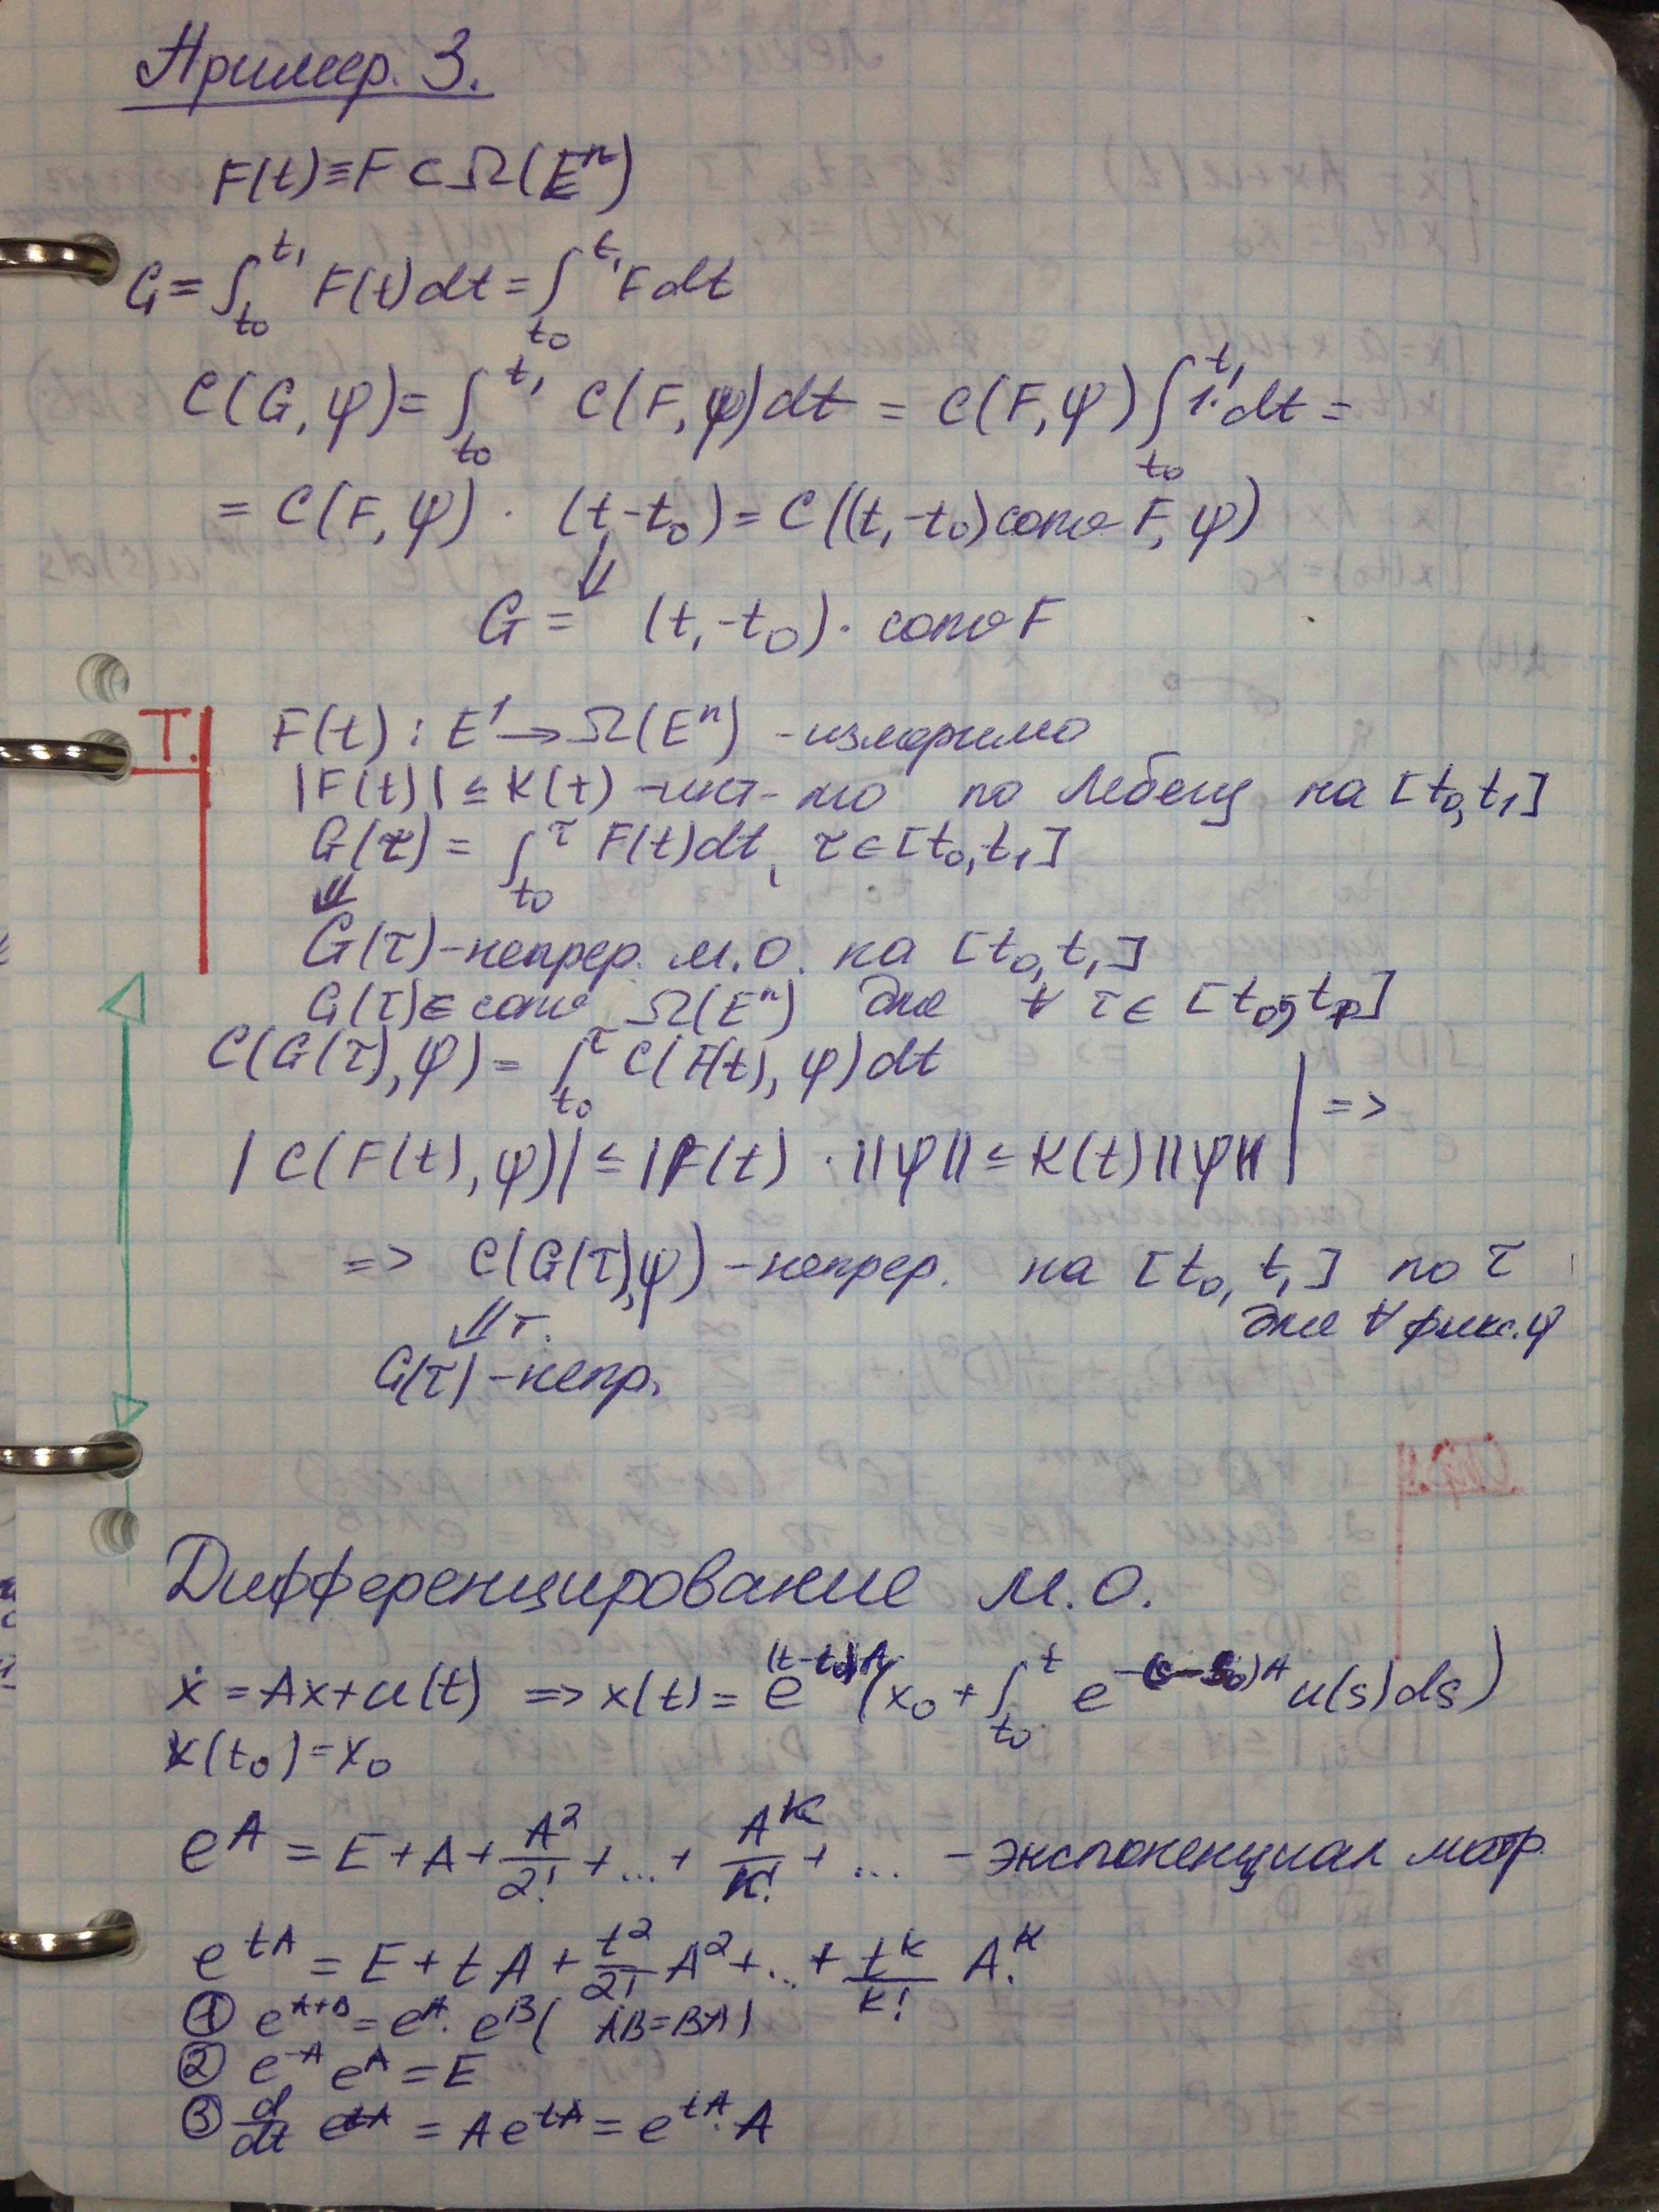 Пример. 3.
F(t)≡F⊂Ω(Eⁿ)
G=∫_{t₀}^{t₁} F(t)dt=∫_{t₀}^{t₁} Fdt
C(G,ψ)=∫_{t₀}^{t₁} C(F,ψ)dt = C(F,ψ)∫_{t₀}^{t₁} 1·dt =
= C(F,ψ) · (t₁-t₀)=C((t₁-t₀)conv F,ψ)
⇓
G= (t₁-t₀)· conv F
Т. F(t) : E¹→Ω(Eⁿ) -измеримо
|F(t)|≤K(t) -инт-мо по Лебегу на [t₀,t₁]
G(τ) = ∫_{t₀}^{τ} F(t)dt, τ∈[t₀,t₁]
⇓
G(τ)-непрер. м.о. на [t₀,t₁]
G(τ)∈conv Ω(Eⁿ) для ∀ τ∈ [t₀,t₁]
C(G(τ),ψ)= ∫_{t₀}^{τ} C(F(t),ψ)dt
|C(F(t),ψ)|≤|F(t) ·||ψ||≤K(t)||ψ|| | =>
=> C(G(τ),ψ) -непрер. на [t₀,t₁] по τ
для ∀ фикс.ψ
⇓ т.
G(τ)-непр.
Дифференцирование м.о.
ẋ=Ax+u(t) => x(t)= e^{(t-t₀)A}(x₀+∫_{t₀}^{t} e^{-(s-s₀)A} u(s)ds)
x(t₀)=x₀
e^A = E+A+A²/2!+...+ A^k/k!+ ... - экспоненциал матр.
e^{tA} = E+tA+t²/2! A²+..+ t^k/k! A^k.
① e^{A+B}=e^A· e^B( AB=BA)
② e^{-A} e^A=E
③ d/dt e^{tA} = Ae^{tA}= e^{tA}·A